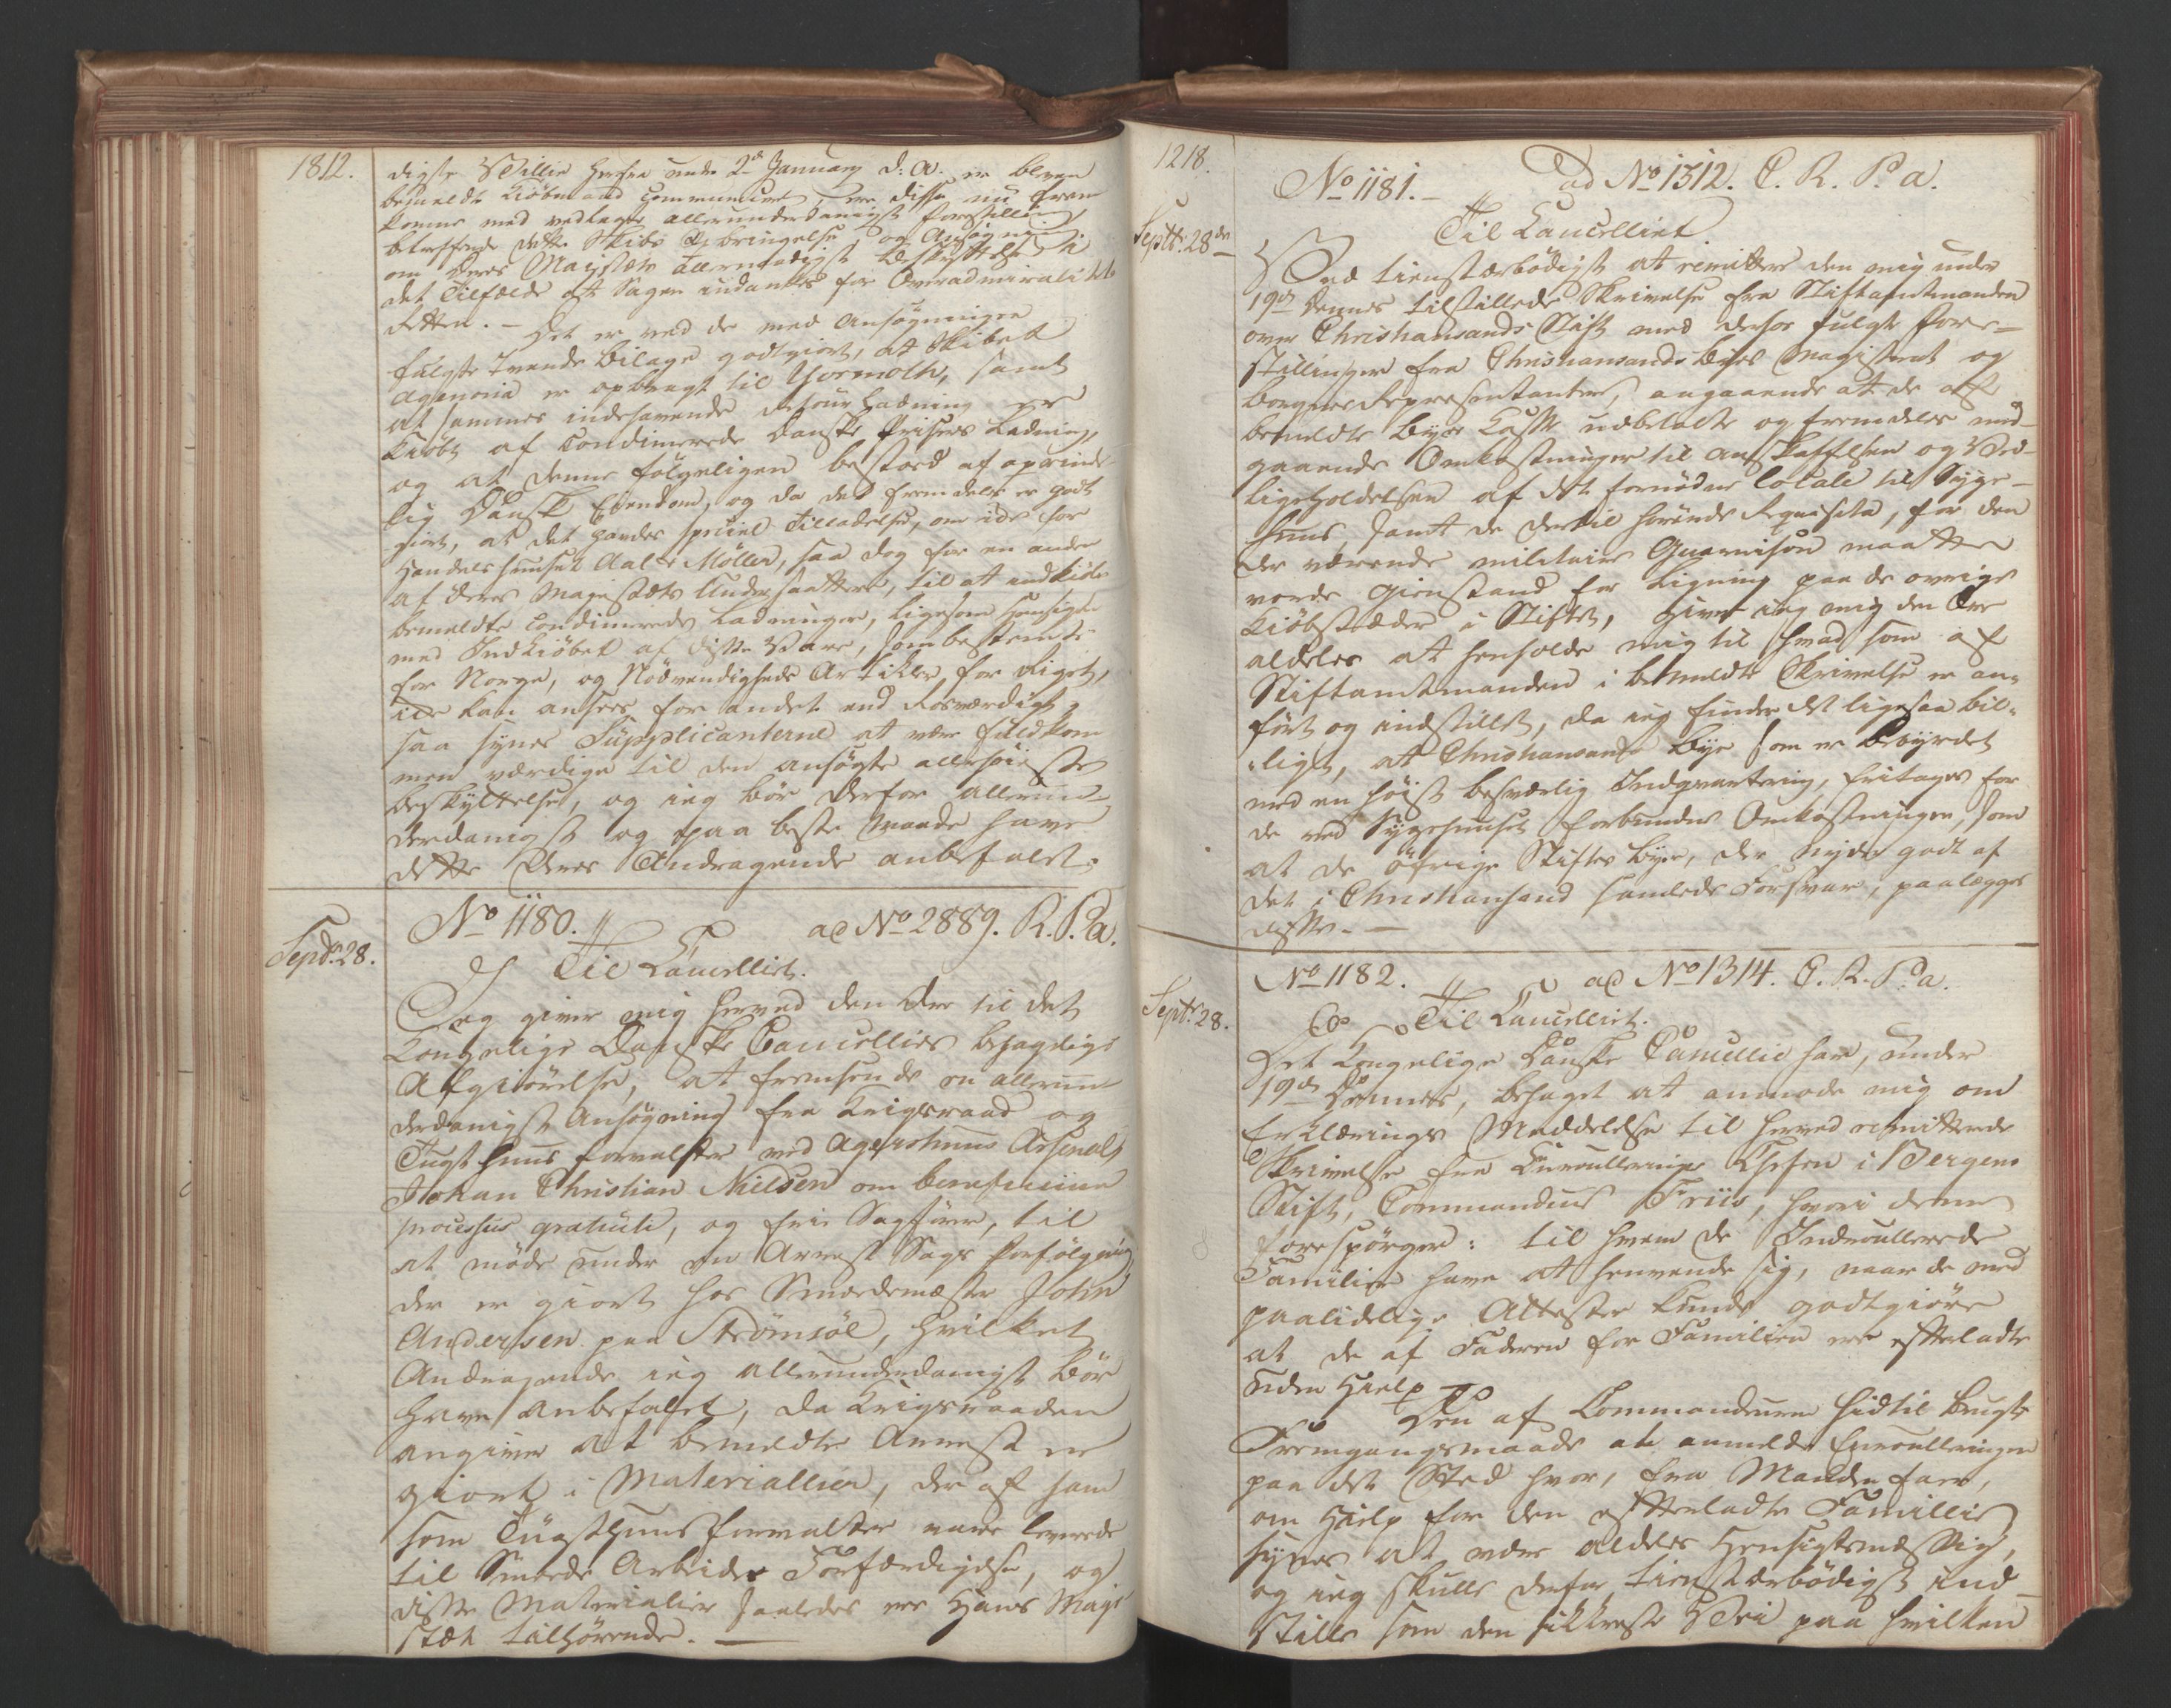 1812.
digste Villie herfra under 2de January d: A. er bleven
bemeldte Kiøbmand communiceret, ere disse nu frem
komne med vedlagte allerunderdanigst forestilling
betreffende dette Skibs Opbringelse, og Ansøgning
om Deres Majestæts Allernaadigst Beskyttelse i
det Tilfælde at Sagen indankes for Overadmiralitets
Retten. – Det er ved de med Ansøgningen
fulgte tvende Bilage godtgiort, at Skibet
Agenoria er opbragt til Yormoth, samt
at sammes indehavende Retour Ladning er
kiøbt af Condemnerede Danske Prisers Ladning,
og at denne følgeligen bestod af oprinde-
lig Dansk Eiendom, og da det fremdeles er godt
giort, at det havdes speciel Tilladelse, om ikke for
Handelshuuset Aal & Møller, saa dog for en anden
af Deres Majestæts Undersaatter, til at indkiøbe
bemeldte condemnerede Ladninger, ligesom Hensigten
med Indkiøbet af disse Vare, som bestemte
for Norge, og Nødvendigheds Artikler for Riget,
ikke kan ansees for andet end Rosværdigt,
saa synes Supplicanterne at være fuldkom
men værdige til den ansøgte allerhøieste
Beskyttelse, og ieg bør derfor allerun-
derdanigst og paa beste Maade have
dette Deres Andragende anbefalet.
Septr. 28.
No 1180. ad No 2889. R. P. a.
Til Cancelliet.
Jeg giver mig herved den Ære til det
Kongelige Danske Cancellies behagelige
Afgiørelse, at fremsende en allerun-
derdanigst Ansøgning fra Krigsraad og
Tugthuusforvalter ved Agershuus Arsenal,
Johan Christian Nielsen om beneficium
processus gratuiti, og frie Sagfører, til
at møde under en Arrest Sags Forfølgning
der er giort hos Smedemester John
Andersen paa Strømsøe, hvilket
Andragende ieg allerunderdanigst bør
have anbefalet, da Krigsraaden
angiver at bemeldte Arrest er
giort i Materiallier, der af ham
som Tugthuusforvalter vare leverede
til Smede Arbeides Forfærdigelse, og
disse Materialier saaledes ere Hans Maje
stæt tilhørende. –
1218.
Septbr: 28de
No 1181. – ad No 1312. C. R. P. a.
Til Cancelliet
Ved tienstærbødigst at remittere den mig under
19de dennes tilstillede Skrivelse fra Stiftamtmanden
over Christiansands Stift med derhos fulgte Fore-
stillinger fra Christiansands Byes Magistrat og
Borger Repræsentanter, angaaende at de af
bemeldte Byes Casse udbetalte og fremdeles med-
gaaende Omkostninger til Anskaffelsen og Ved-
ligeholdelsen af det fornødne Locale til Syge-
huus, samt de dertil hørende Rqvisita, for den
der værende militaire Guarnison maatte
vorde Gienstand for Ligning paa de øvrige
Kiøbstæder i Stiftet, giver ieg mig den Ære
aldeles at henholde mig til hvad som af
Stiftamtmanden i bemeldte Skrivelse er an-
ført og indstillet, da ieg finder det ligesaa bil-
ligt, at Christiansands Bye som er bebyrdet
med en høist besværlig Indqvartering, fritages for
de ved Sygehuuset forbundne Omkostninger, som
at de øfrige Stiftes Byer, der nyder godt af
det i Christiansand samlede Forsvar, paalægges
disse. –
Septr. 28.
No 1182. ad No 1314. C. R. P. a.
Til Cancelliet.
Det Kongelige Danske Cancellie har, under
19de dennes, behaget at anmode mig om
Erklærings Meddelelse til herved remitterede
Skrivelse fra Enroullerings Chefen i Bergens
Stift, Commandeur Friis, hvori denne
forespørger: til hvem de Indroullerede
Familier have at henvende sig, naar de med
paalidelige Attester kunde godtgiøre
at de af Faderen for Familien ere efterladte
uden Hielp.
Den af Commandeuren hidtil brugte
Fremgangsmaade at anmelde Enroulleringen
paa det Sted hvor, fra Manden foer,
om Hielp for den efterladte Famillie
synes at være aldeles Hensigtsmæssig,
og ieg skulle derfor tienstærbødigst ind-
stille som den sikkreste Vei paa hvilken